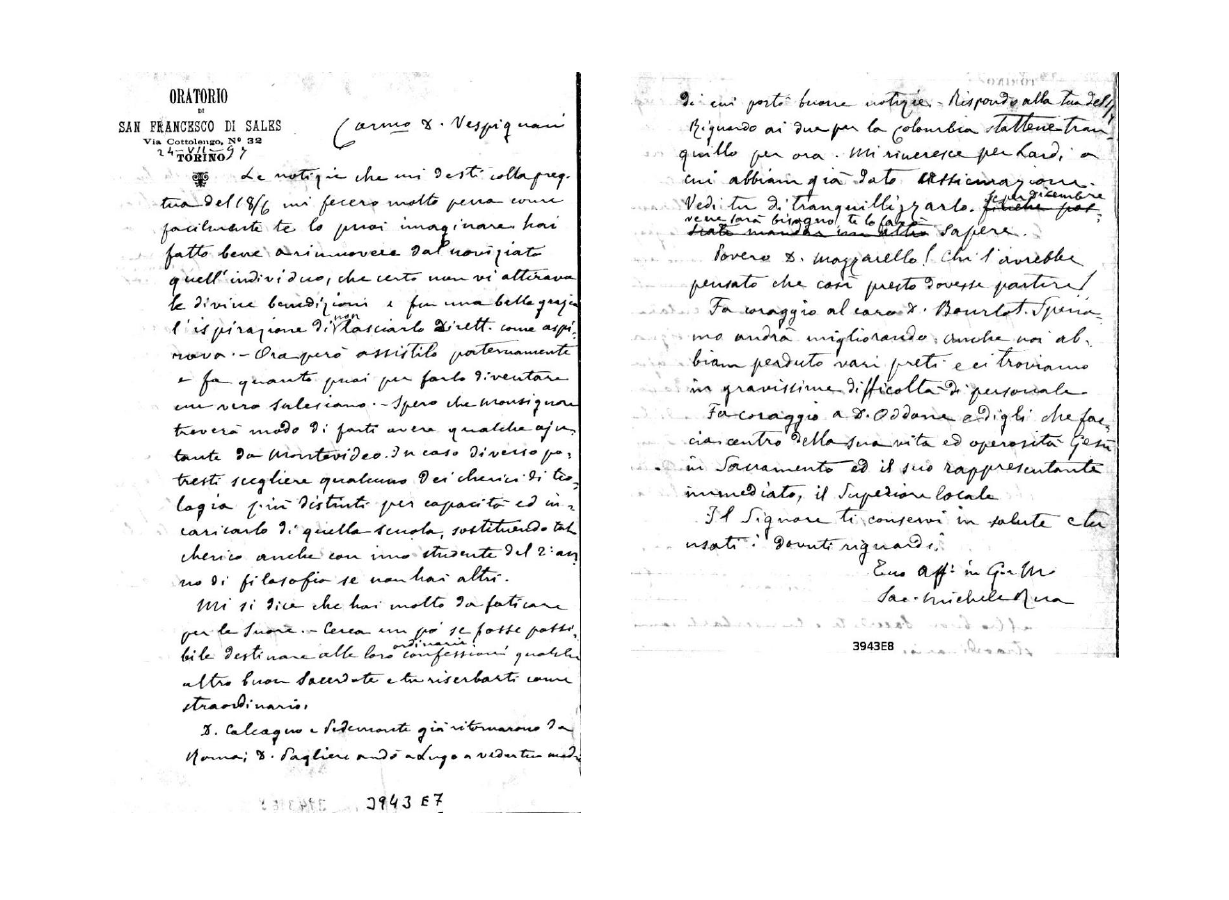 ORATORIO
DI
SAN FRANCESCO DI SALES
Via Cottolengo, Nº 32
TORINO
24-VII-97
Carmo D. Vespignani
Le notizie che mi desti colla preg.
tua del 18/6 mi fecero molto pena come
facilmente te lo puoi immaginare hai
fatto bene a rimuovere dal noviziato
quell'individuo, che certo non vi attirava
le divine benedizioni e fu una bella grazia
l'ispirazione di non lasciarlo Dirett. come aspi-
rava. - Ora però assistilo paternamente
e fa quanto puoi per farlo diventare
un vero salesiano. - Spero che Monsignore
troverà modo di farti avere qualche aju-
tante da Montevideo. In caso diverso po-
tresti scegliere qualcuno dei cherici di teo-
logia più distinti per capacità ed in-
caricarlo di quella scuola, sostituendo tal
cherico anche con uno studente del 2º an-
no di filosofia se non hai altri.
Mi si dice che hai molto da faticare
per le Suore. - Cerca un pò se fosse possi-
bile destinare alle loro confessioni ordinarie qualche
altro buon Sacerdote e tu riserbarti come
straordinario.
D. Calcagno e Pedemonte già ritornarono da
Roma; D. Pagliere andò a Lugo a veder tua madre
3943 E7
di cui portò buone notizie. - Rispondo alla tua del
Riguardo ai due per la Colombia stattene tran-
quillo per ora. Mi rincresce per Lardi, a
cui abbiam già dato assicurazione.
Vedi tu di tranquillizzarlo. Se per dicembre
ve ne sarà bisogno, te lo farò
sapere.
Povero D. Mazzarello! Chi l'avrebbe
pensato che così presto dovesse partire!
Fa coraggio al caro D. Bourlot. Speria-
mo andrà migliorando: anche noi ab-
biam perduto vari preti e ci troviamo
in gravissime difficoltà di personale
Fa coraggio a D. Oddone e digli che fac-
cia centro della sua vita ed operosità Gesù
in Sacramento ed il suo rappresentante
immediato, il Superiore locale
Il Signore ti conservi in salute e tu
usati i dovuti riguardi.
Tuo Aff. in G. e M.
Sac. Michele Rua
3943E8